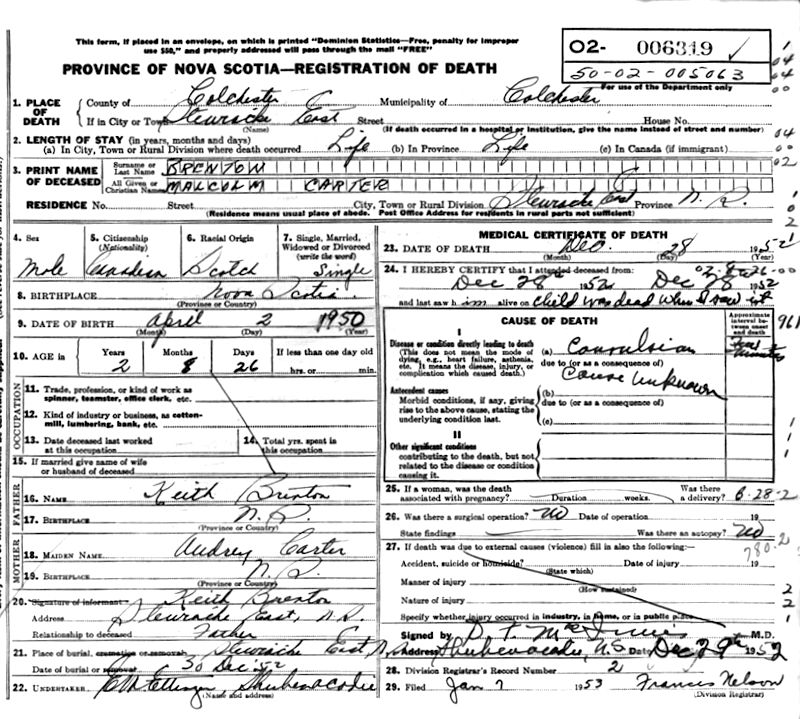 This form, if placed in an envelope, on which is printed "Dominion Statistics—Free, penalty for improper
use $50," and properly addressed will pass through the mail "FREE"
PROVINCE OF NOVA SCOTIA—REGISTRATION OF DEATH
02- 006319 ✓
50-02-005063
For use of the Department only
1. PLACE OF DEATH
County of Colchester Municipality of Colchester
If in City or Town East Street House No.
(Name) (If death occurred in a hospital or institution, give the name instead of street and number)
2. LENGTH OF STAY (in years, months and days)
(a) In City, Town or Rural Division where death occurred Life (b) In Province Life (c) In Canada (if immigrant)
3. PRINT NAME OF DECEASED
Surname or Last Name BRENTON
All Given or Christian Names MALCOLM CARTER
RESIDENCE No. Street City, Town or Rural Division East Province N.S.
(Residence means usual place of abode. Post Office Address for residents in rural parts not sufficient)
4. Sex Male
5. Citizenship (Nationality) Canadian
6. Racial Origin Scotch
7. Single, Married, Widowed or Divorced (write the word) Single
8. BIRTHPLACE Nova Scotia
(Province or Country)
9. DATE OF BIRTH April 2 1950
(Month) (Day) (Year)
10. AGE in Years 2 Months 8 Days 26 If less than one day old
hrs. or min.
OCCUPATION
11. Trade, profession, or kind of work as
spinner, teamster, office clerk, etc.
12. Kind of industry or business, as cotton-
mill, lumbering, bank, etc.
13. Date deceased last worked
at this occupation
14. Total yrs. spent in
this occupation
15. If married give name of wife
or husband of deceased
FATHER
16. NAME Keith Brenton
17. BIRTHPLACE N.S.
(Province or Country)
MOTHER
18. MAIDEN NAME Audrey Carter
19. BIRTHPLACE N.S.
(Province or Country)
20. Signature of informant Keith Brenton
Address East, N.S.
Relationship to deceased Father
21. Place of burial, cremation or removal East N.S.
Date of burial or removal 30 Dec '52
22. UNDERTAKER Ettinger Shubenacadie
(Name and address)
MEDICAL CERTIFICATE OF DEATH
23. DATE OF DEATH Dec. 28 1952
(Month) (Day) (Year)
24. I HEREBY CERTIFY that I attended deceased from:
Dec 28 1952 Dec 28 1952
and last saw him alive on child was dead when I saw it
CAUSE OF DEATH
Approximate interval between onset and death
I
Disease or condition directly leading to death
(This does not mean the mode of
dying, e.g., heart failure, asthenia,
etc. It means the disease, injury, or
complication which caused death.)
(a) Convulsion
due to (or as a consequence of)
Cause unknown
Antecedent causes
Morbid conditions, if any, giving
rise to the above cause, stating the
underlying condition last.
(b)
due to (or as a consequence of)
(c)
II
Other significant conditions
contributing to the death, but not
related to the disease or condition
causing it.
25. If a woman, was the death
associated with pregnancy? Duration weeks. Was there a delivery?
26. Was there a surgical operation? No Date of operation 19
State findings Was there an autopsy? No
780.2
27. If death was due to external causes (violence) fill in also the following:—
Accident, suicide or homicide? Date of injury 19
(State which)
Manner of injury
(How sustained)
Nature of injury
Specify whether injury occurred in industry, in home, or in public place
Signed by D. T. McInnis M.D.
Address Shubenacadie, N.S. Date Dec 29th 1952
28. Division Registrar's Record Number 2
29. Filed Jan 7 1953 Francis Nelson
(Division Registrar)